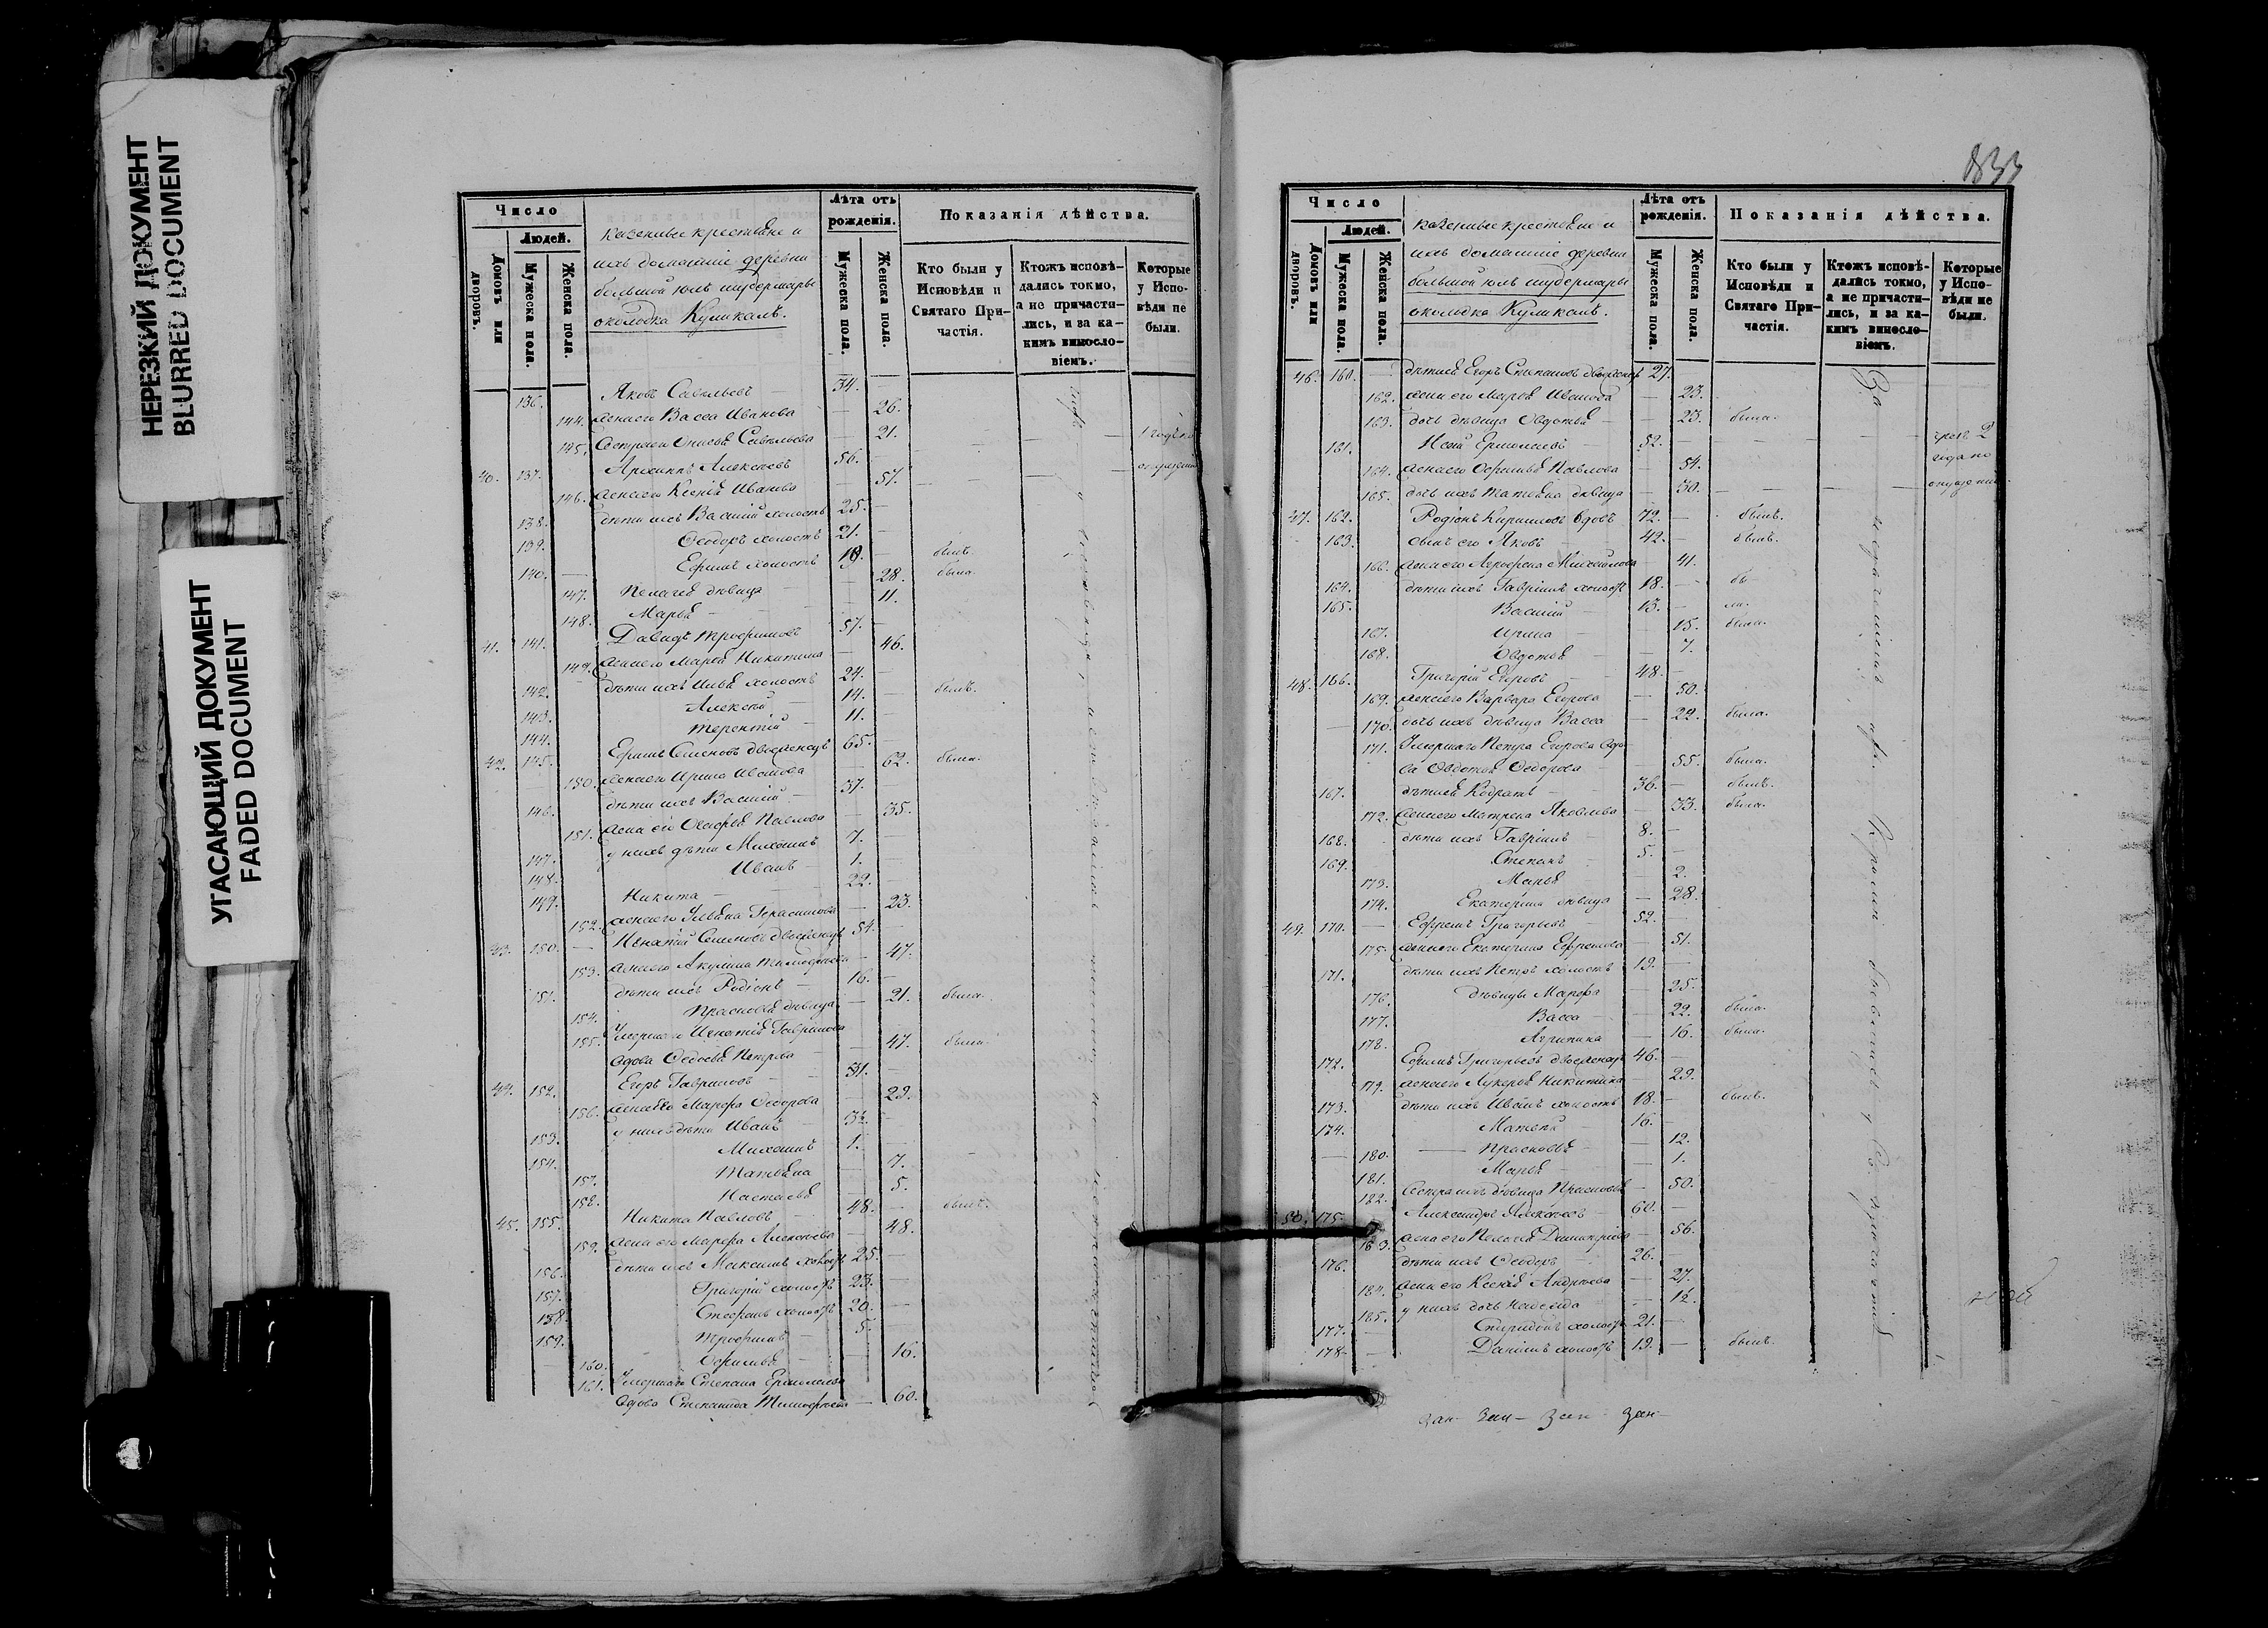 НЕРЕЗКИЙ ДОКУМЕНТ
BLURRED DOCUMENT
УГАСАЮЩИЙ ДОКУМЕНТ
FADED DOCUMENT
Число
Людей.
Домовъ или дворовъ.
Мужеска пола.
Женска пола.
казенные крестьяне и
ихъ домашніе деревни
большой юль шудермары
околодка Кумикалъ.
Лѣта отъ рожденія.
Мужеска пола.
Женска пола.
Показанія дѣйства.
Кто были у Исповѣди и Святаго Причастія.
Ктожъ исповѣдались токмо, а не причастились, и за какимъ винословіемъ.
Которые у Исповѣди не были.
136. Яковъ Савельевъ 34.
144. жена его Васса Иванова 26.
145. Сестра его Савельева 21.
40. 137. Архиппъ Алексѣевъ 56.
146. жена его Ксенія Иванова 57.
138. дѣти ихъ Василій холостъ 25.
139. Ѳеодоръ холостъ 21.
140. Ефимъ холостъ 19. былъ.
147. Пелагея дѣвица 28. была.
148. Марья 11.
41. 141. Давидъ Трофимовъ 57.
149. жена его Марья Никитина 46.
142. дѣти ихъ Илья холостъ 24. былъ.
143. Алексѣй 14.
144. Терентій 11.
42. 145. Ефимъ Семеновъ двоеженецъ 65.
150. жена его Ирина Иванова 62. была.
146. дѣти ихъ Василій 37.
151. жена его Павлова 35.
147. у нихъ дѣти Михаилъ 7.
148. Иванъ 1.
149. Никита 22.
152. жена его Ульяна Герасимова 23.
43. 150. Игнатій Семеновъ двоеженецъ 54.
153. жена его Акулина Тимофеева 47.
151. дѣти ихъ Родіонъ 16.
154. Прасковья дѣвица 21. была.
155. Умершаго Игнатія Гаврилова
вдова Ѳедосья Петрова 47. была.
44. 152. Егоръ Гавриловъ 31.
156. жена его Марфа Ѳедорова 29.
153. у нихъ дѣти Иванъ
154. Михаилъ 1.
157. Татьяна 7.
158. Настасья 5.
45. 155. Никита Павловъ 48. былъ.
159. жена его Марфа Алексѣева 48.
156. дѣти ихъ Максимъ холостъ 25.
157. Григорій холостъ 23.
158. Стефанъ холостъ 20.
159. Трофимъ 5.
160. Ѳефимья 16.
161. Умершаго Степана Ермолаева
вдова Степанида Тимофеева 60.
833
Число
Людей.
Домовъ или дворовъ.
Мужеска пола.
Женска пола.
казенные крестьяне и
ихъ домашніе деревни
большой юль шудермары
околодка Кумикалъ.
Лѣта отъ рожденія.
Мужеска пола.
Женска пола.
Показанія дѣйства.
Кто были у Исповѣди и Святаго Причастія.
Ктожъ исповѣдались токмо, а не причастились, и за какимъ винословіемъ.
Которые у Исповѣди не были.
46. 160. дѣти ея Егоръ Степановъ двоеженецъ 27.
162. жена его Марья Иванова 23.
163. дочь дѣвица Овдотья 23. была.
161. Ермолаевъ 52.
164. жена его Ѳефимья Павлова 54.
165. дочь ихъ Татьяна дѣвица 30.
47. 162. Родіонъ Кириловъ вдовъ 72. былъ.
163. сынъ его Яковъ 42. былъ.
166. жена его Агрофена Михайлова 41.
164. дѣти ихъ Гавріилъ холостъ 18. бы-
165. Василій 13. ли.
167. Ирина 15. была.
168. Овдотья 7.
48. 166. Григорій Егоровъ 48.
169. жена его Варвара Егорова 50.
170. дочь ихъ дѣвица Васса 22. была.
171. Умершаго Петра Егорова вдо-
ва Овдотья Ѳедорова 55. была.
167. дѣти ея Кодратъ 36. былъ.
172. жена его Матрена Яковлева 33. была.
168. дѣти ихъ Гавріилъ 8.
169. Степанъ 5.
173. Марья 2.
174. Екатерина дѣвица 28.
49. 170. Ефремъ Григорьевъ 52.
175. жена его Екатерина Ефремова 51.
171. дѣти ихъ Петръ холостъ 19.
176. дѣвицы Марфа 25.
177. Васса 22. была.
178. Агрипина 16. была.
172. Ефимъ Григорьевъ двоеженецъ 46.
179. жена его Лукерья Никитина 29.
173. дѣти ихъ Иванъ холостъ 18. былъ.
174. Матвей 16.
180. Прасковья 12.
181. Марья 1.
182. Сестра ихъ дѣвица Прасковья 50.
50. 175. Александръ Алексѣевъ 60.
183. жена его Пелагея Димитріева 56.
176. дѣти ихъ Ѳеодоръ 26.
184. жена его Ксенія Андреева 27.
185. у нихъ дочь Надежда
177. Спиридонъ холостъ 21.
178. Даніилъ холостъ 19. былъ.